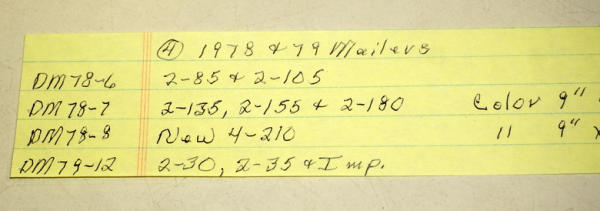 ④ 1978 & 79 Mailers
DM78-6 2-85 & 2-105
DM78-7 2-135, 2-155 & 2-180 Color 9"
DM78-8 New 4-210 " 9" x
DM79-12 2-30, 2-35 & Imp.